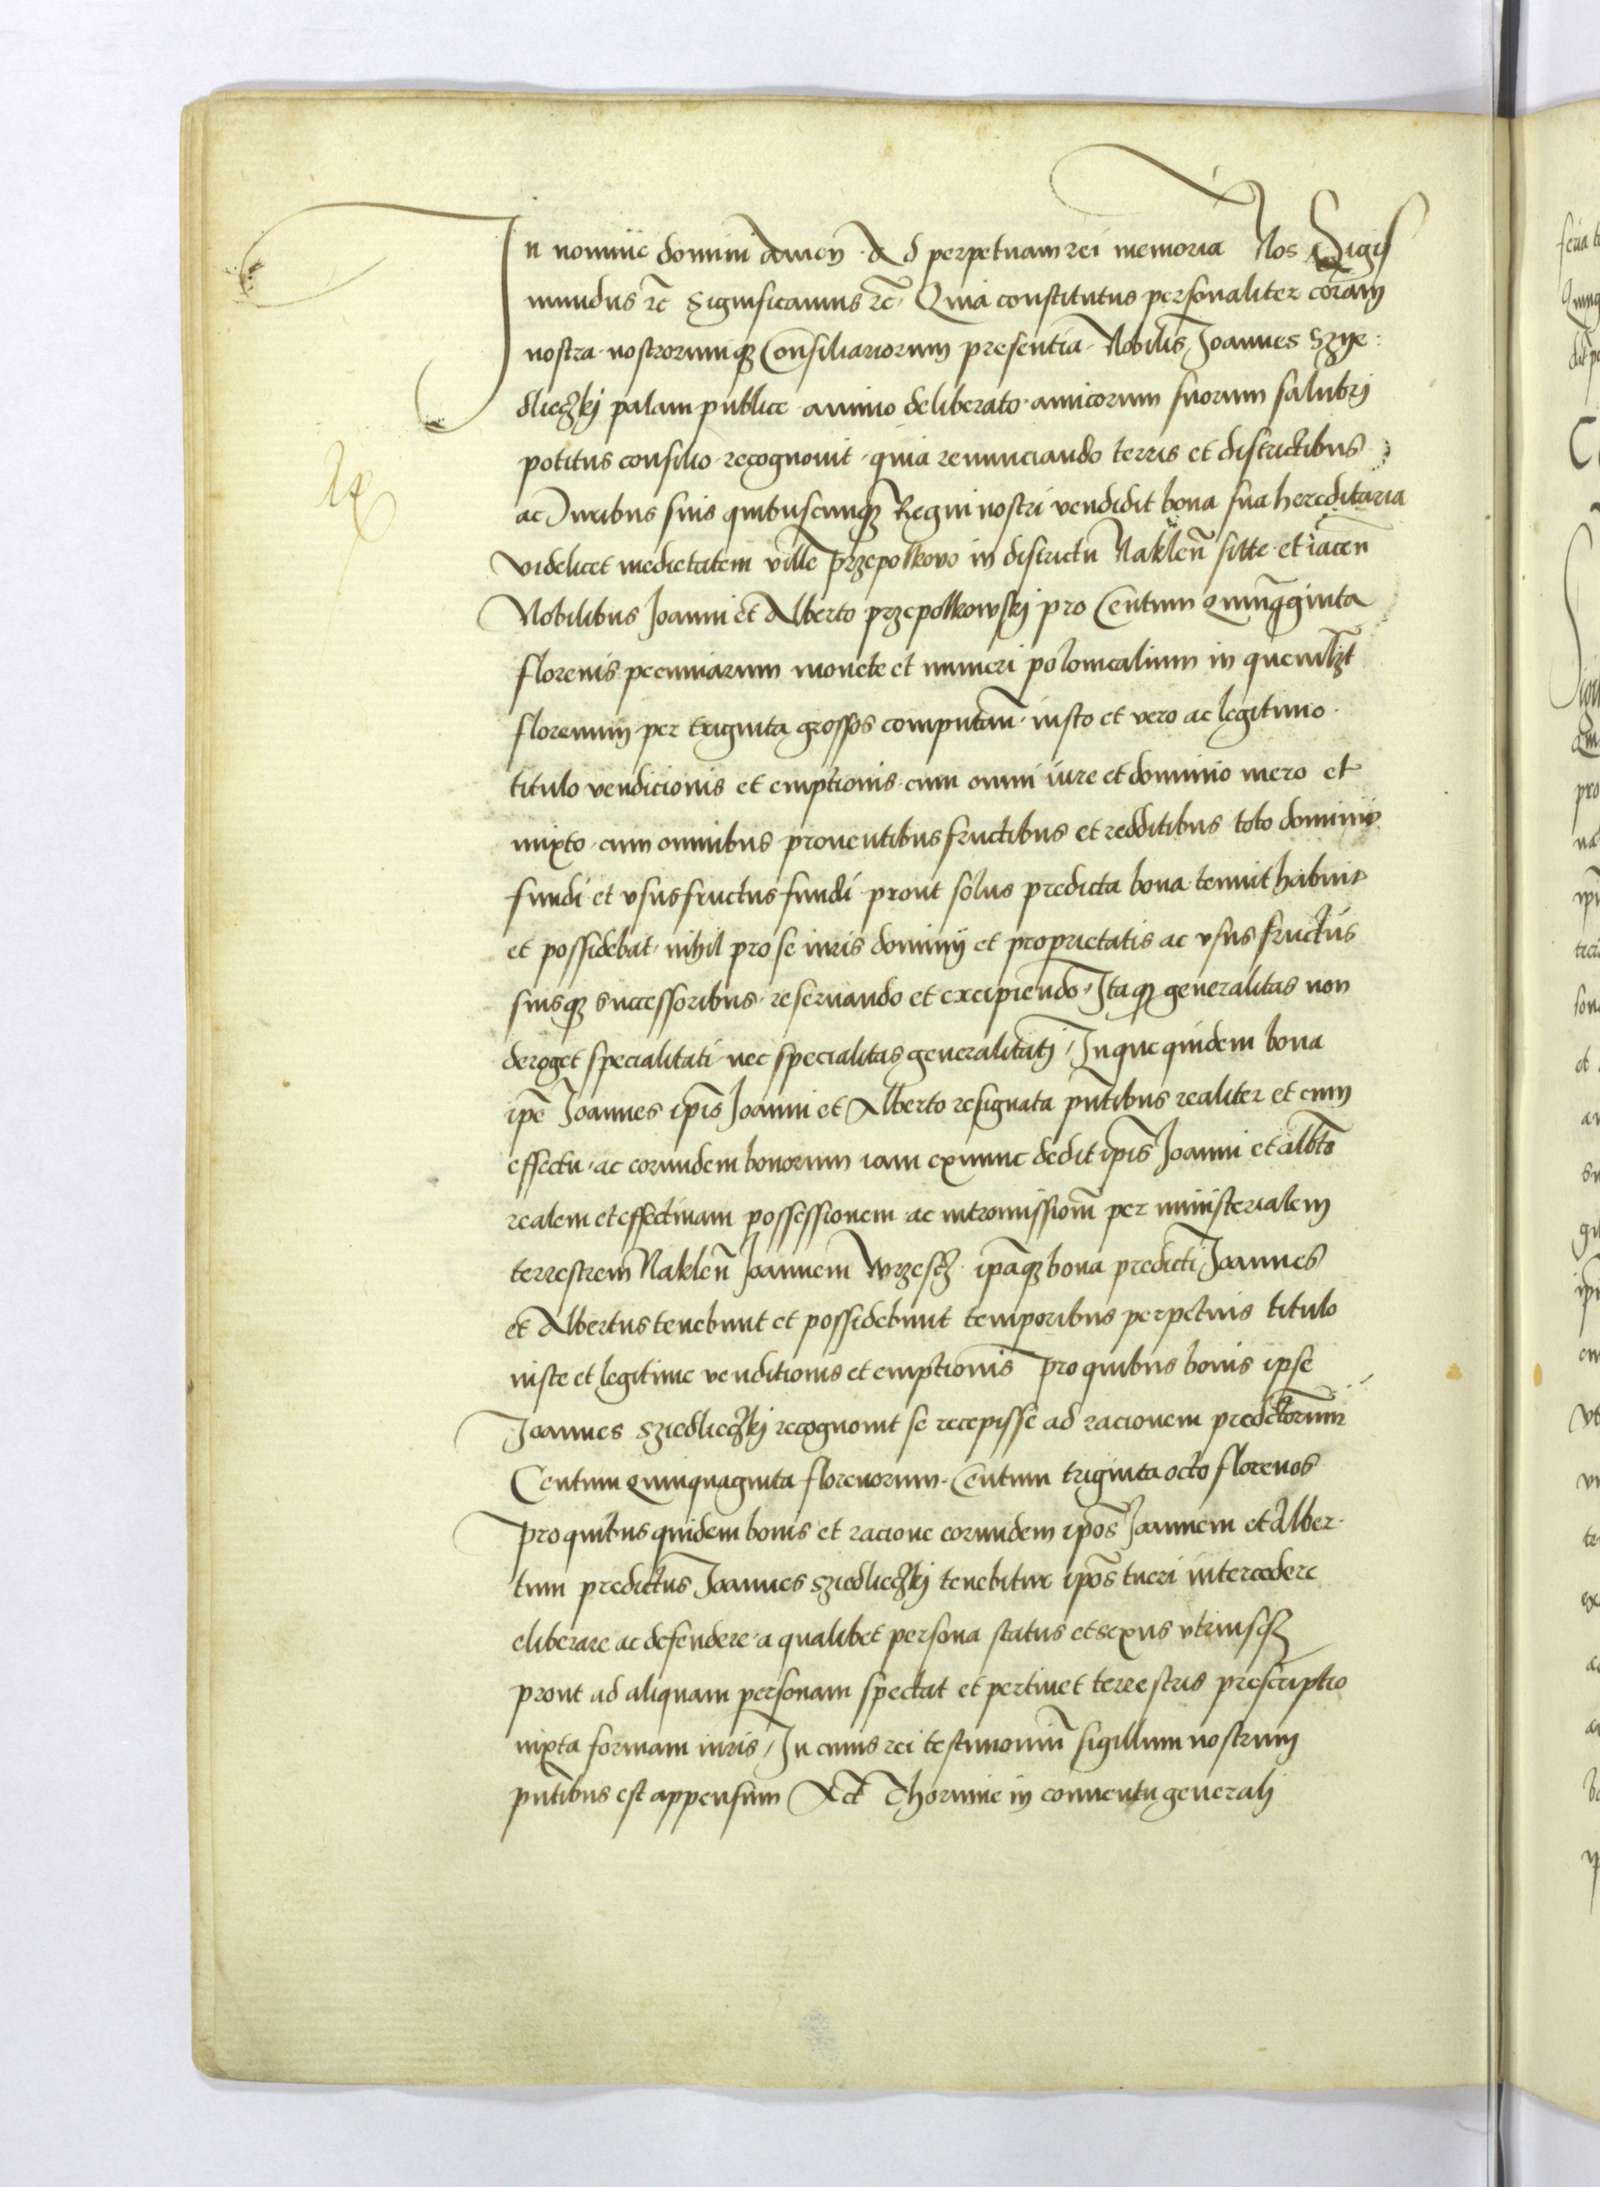 In nomine domini Amen Ad perpetuam rei memoria Nos Sigis
mundus rc̃ Significamus rc̃, Quia constitutus personaliter coram
nostra nostrorumq₃ Consiliariorum presentia Nobilis Joannes Szye:
dlieczkj palam publice animo deliberato amicorum suorum salubrj
potitus consilio recognovit quia renunciando terris et districtibus
ac Juribus suis quibuscunq₃ Regni nostri vendidit bona sua hereditaria
videlicet medietatem ville Przepolkovo in districtu Naklen̄ sitte et iacen̄
Nobilibus Joanni et Alberto przepolkowskj pro Centum Quinq̄ginta
florenis pecuniarum monete et numeri polonicalium in quemlꝫt
florenum per triginta grossos computan̄ iusto et vero ac legitimo
titulo vendicionis et emptionis cum omni iure et dominio mero et
mixto cum omnibus proventibus fructibus et redditibus toto dominio
fundi et vsusfructus fundi prout solus predicta bona tenuit habuit
et possidebat, nihil pro se iuris dominij et proprietatis ac vsus fructus
suisq₃ successoribus reservando et excipiendo, Itaq₃ generalitas non
deroget specialitati nec specialitas generalitatj, In que quidem bona
ip̄e Joannes ip̄is Joanni et Alberto resignata pñtibus realiter et cum
effectu ac eorundem bonorum iam exnunc dedit ip̄is Joanni et albto̅
realem et effectivam possessionem ac intromissiom̄ per ministerialem
terrestrem Naklen̄ Joannem Wrzescz ip̄aq₃ bona predicti Joannes
et Albertus tenebunt et possidebunt temporibus perpetuis titulo
iuste et legitime venditionis et emptionis Pro quibus bonis ipse
Joannes Sziedlieczkj recognovit se recepisse ad racionem predictorum
Centum Quinquaginta florenorum Centum triginta octo florenos
Pro quibus quidem bonis et racione eorundem ip̄os Joannem et Alber-
tum predictus Joannes Sziedlieczkj tenebitur ip̄os tueri intercedere
eliberare ac defendere a qualibet persona status et sexus vtriusq₃
prout ad aliquam personam spectat et pertinet terrestris prescriptio
iuxta formam iuris, In cuius rei testimoniū sigillum nostrum
pñtibus est appensum Act̄ Thorunie in conventu generalj